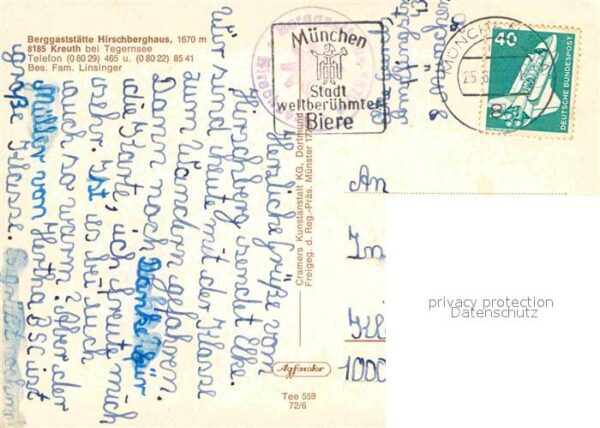 Berggaststätte Hirschberghaus, 1670 m
8185 Kreuth bei Tegernsee
Telefon (0 80 29) 465 u. (0 80 22) 85 41
Bes. Fam. Linsinger
München
Stadt
weltberühmter
Biere
MÜNCHEN
25.
40
DEUTSCHE BUNDESPOST
Herzliche Grüße vom
Hirschberg sendet Elke.
Wir sind heute mit der Klasse
zum Wandern gefahren.
Dann noch Danke für
die Karte, ich freute mich
sehr. Ist es bei euch
auch so warm? Aber der
Müller von Hertha BSC ist
große Klasse.
Cramers Kunstanstalt KG, Dortmund
Freigeg. d. Reg.-Präs. Münster
An
1000
privacy protection
Datenschutz
Agfacolor
Tee 559
72/6